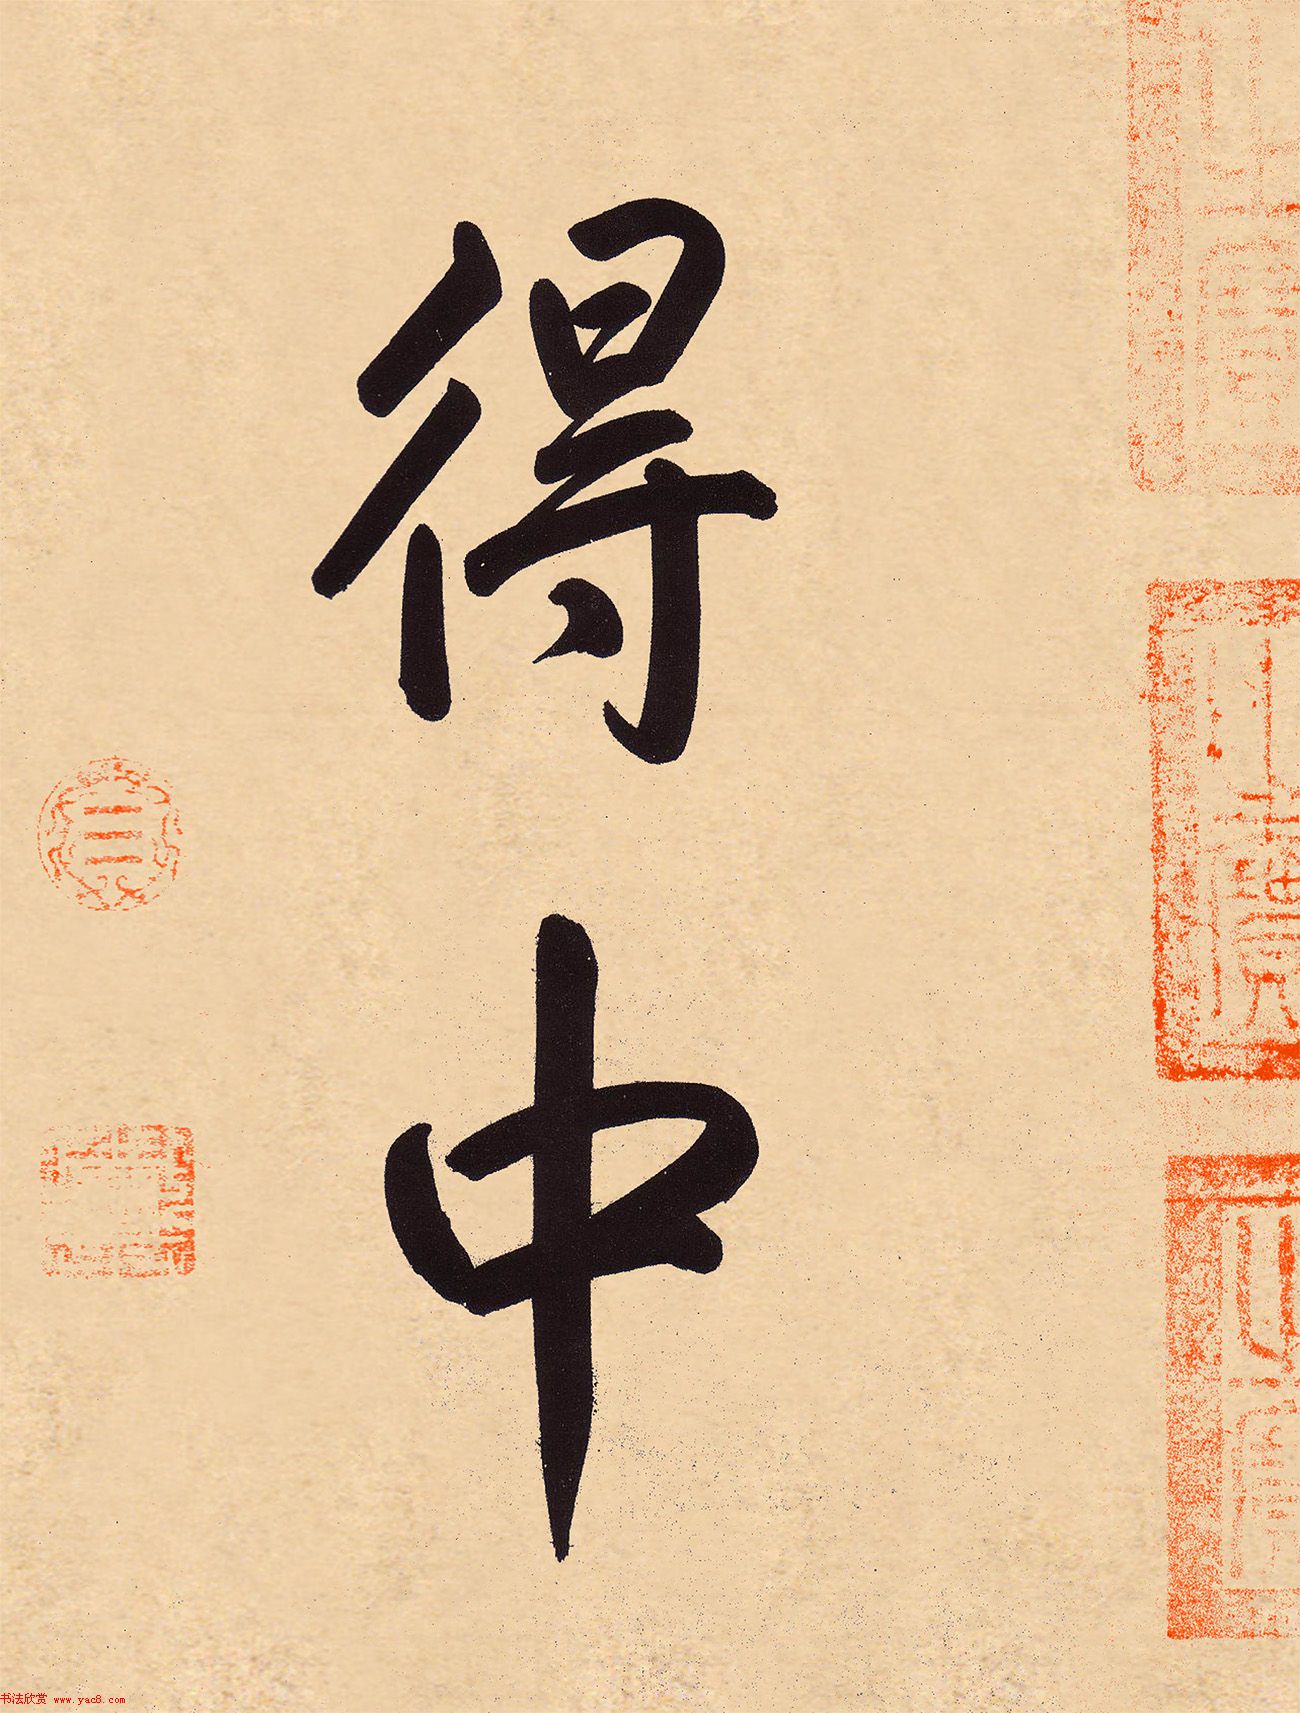 得中
书法欣赏 www.yac8.com